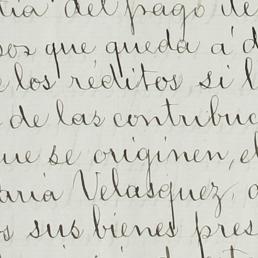 tia del pago de
sos que queda á d
e los réditos si l
de las contribuc
que se originen, el
aria Velasquez, a
os sus bienes pres